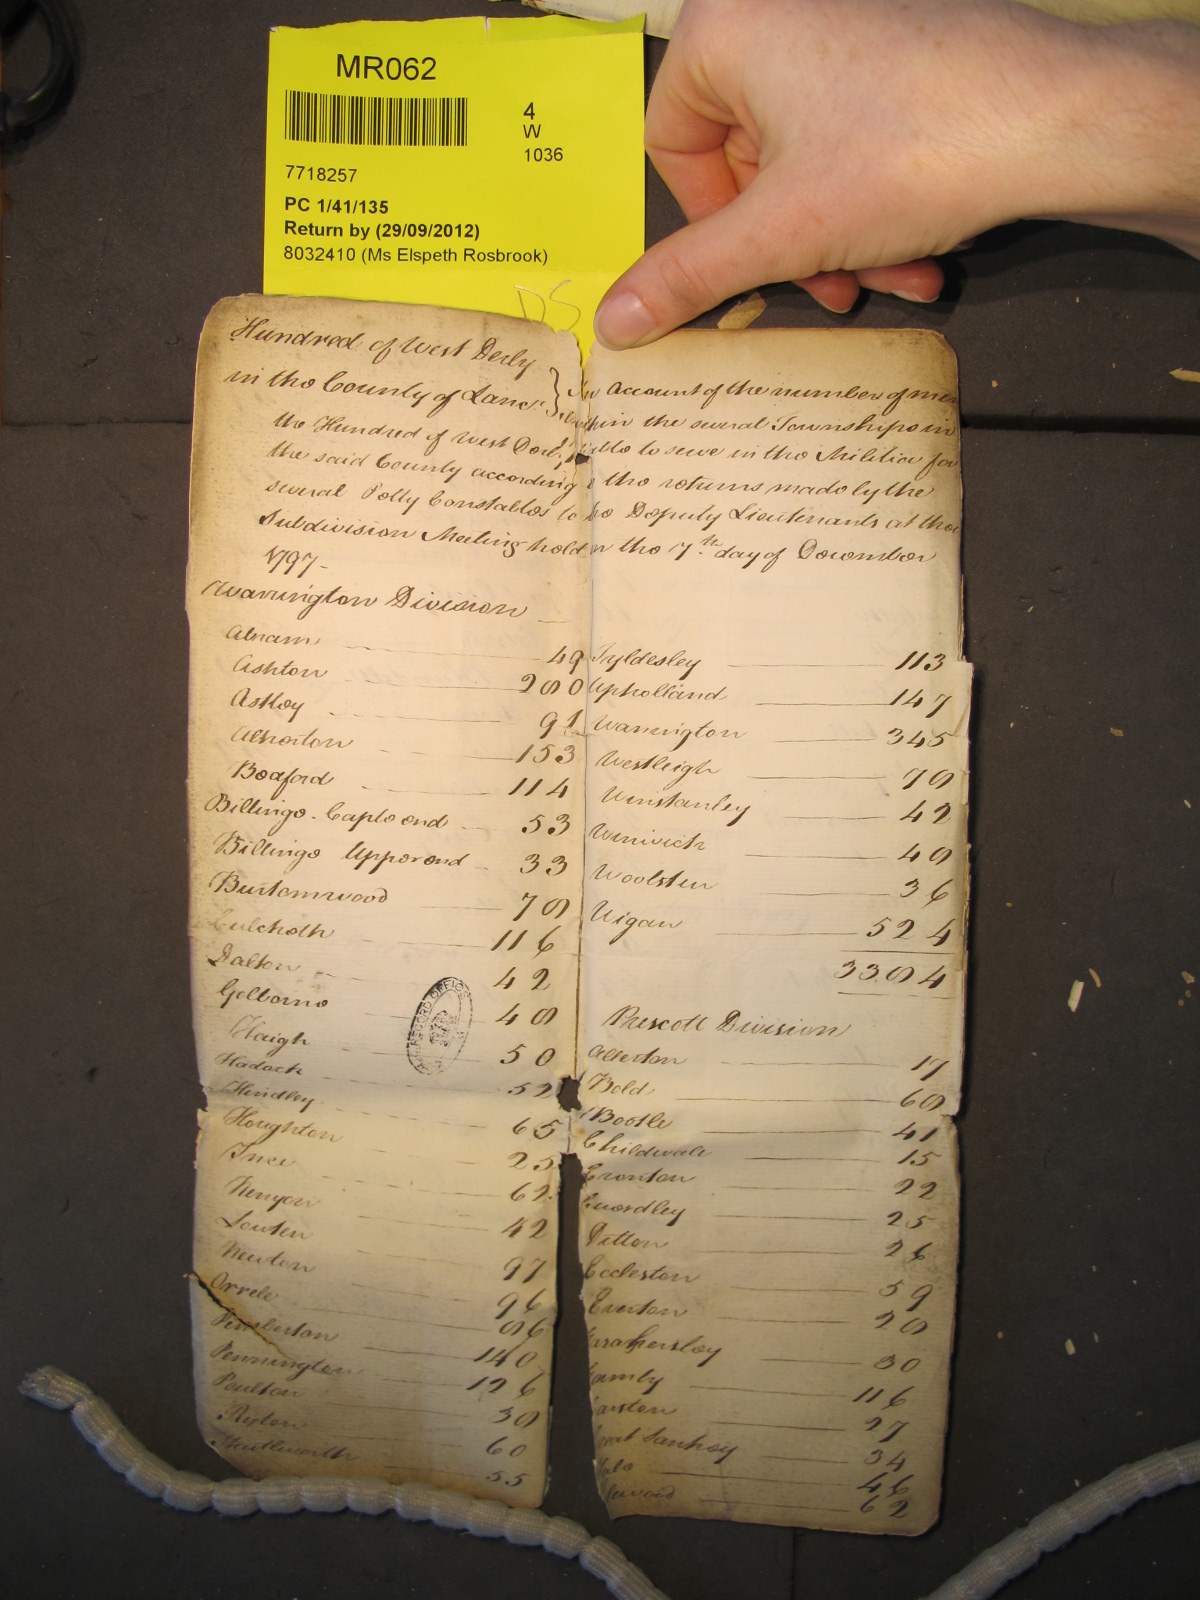 MR062
4
W
1036
7718257
PC 1/41/135
Return by (29/09/2012)
8032410 (Ms Elspeth Rosbrook)
DS
Hundred of West Derby
in the County of Lanc.r } An Account of the number of men
within the several Townships in
the Hundred of West Derby liable to serve in the Militia for
the said County according to the returns made by the
several Petty Constables to the Deputy Lieutenants at their
Subdivision Meeting held on the 7th day of December
1797 -
Warrington Division
Abram 49
Ashton 280
Astley 91
Atherton 153
Bedford 114
Billinge Caple end 53
Billinge Upper end 33
Burtonwood 78
Culcheth 116
Dalton 42
Golborne 48
Haigh 50
Hadock 52
Hindley 65
Houghton 25
Ince 62
Kenyon 42
Lowton 97
Newton 96
Orrele 86
Pemberton 140
Pennington 126
Poulton 38
Rixton 60
Southworth 55
Tyldesley 113
Upholland 147
Warrington 345
Westleigh 78
Winstanley 42
Winwick 48
Woolston 36
Wigan 524
3384
Prescott Division
Allerton 17
Bold 68
Bootle 41
Childwale 15
Cronton 22
Cuerdley 25
Ditton 26
Eccleston 59
Everton 28
Fazakersley 30
Formby 116
Garston 27
Great Sankey 34
Hale 46
Halewood 62
RECORD OFFICE